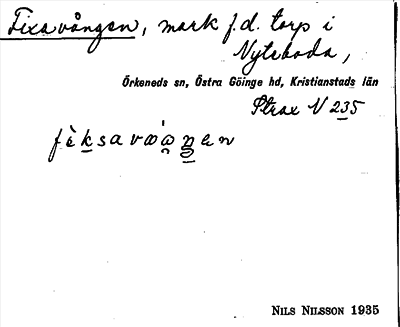 Fixavången, mark f.d. torp i
Nyteboda,
Örkeneds sn, Östra Göinge hd, Kristianstads län
Strax N 235
NILS NILSSON 1935